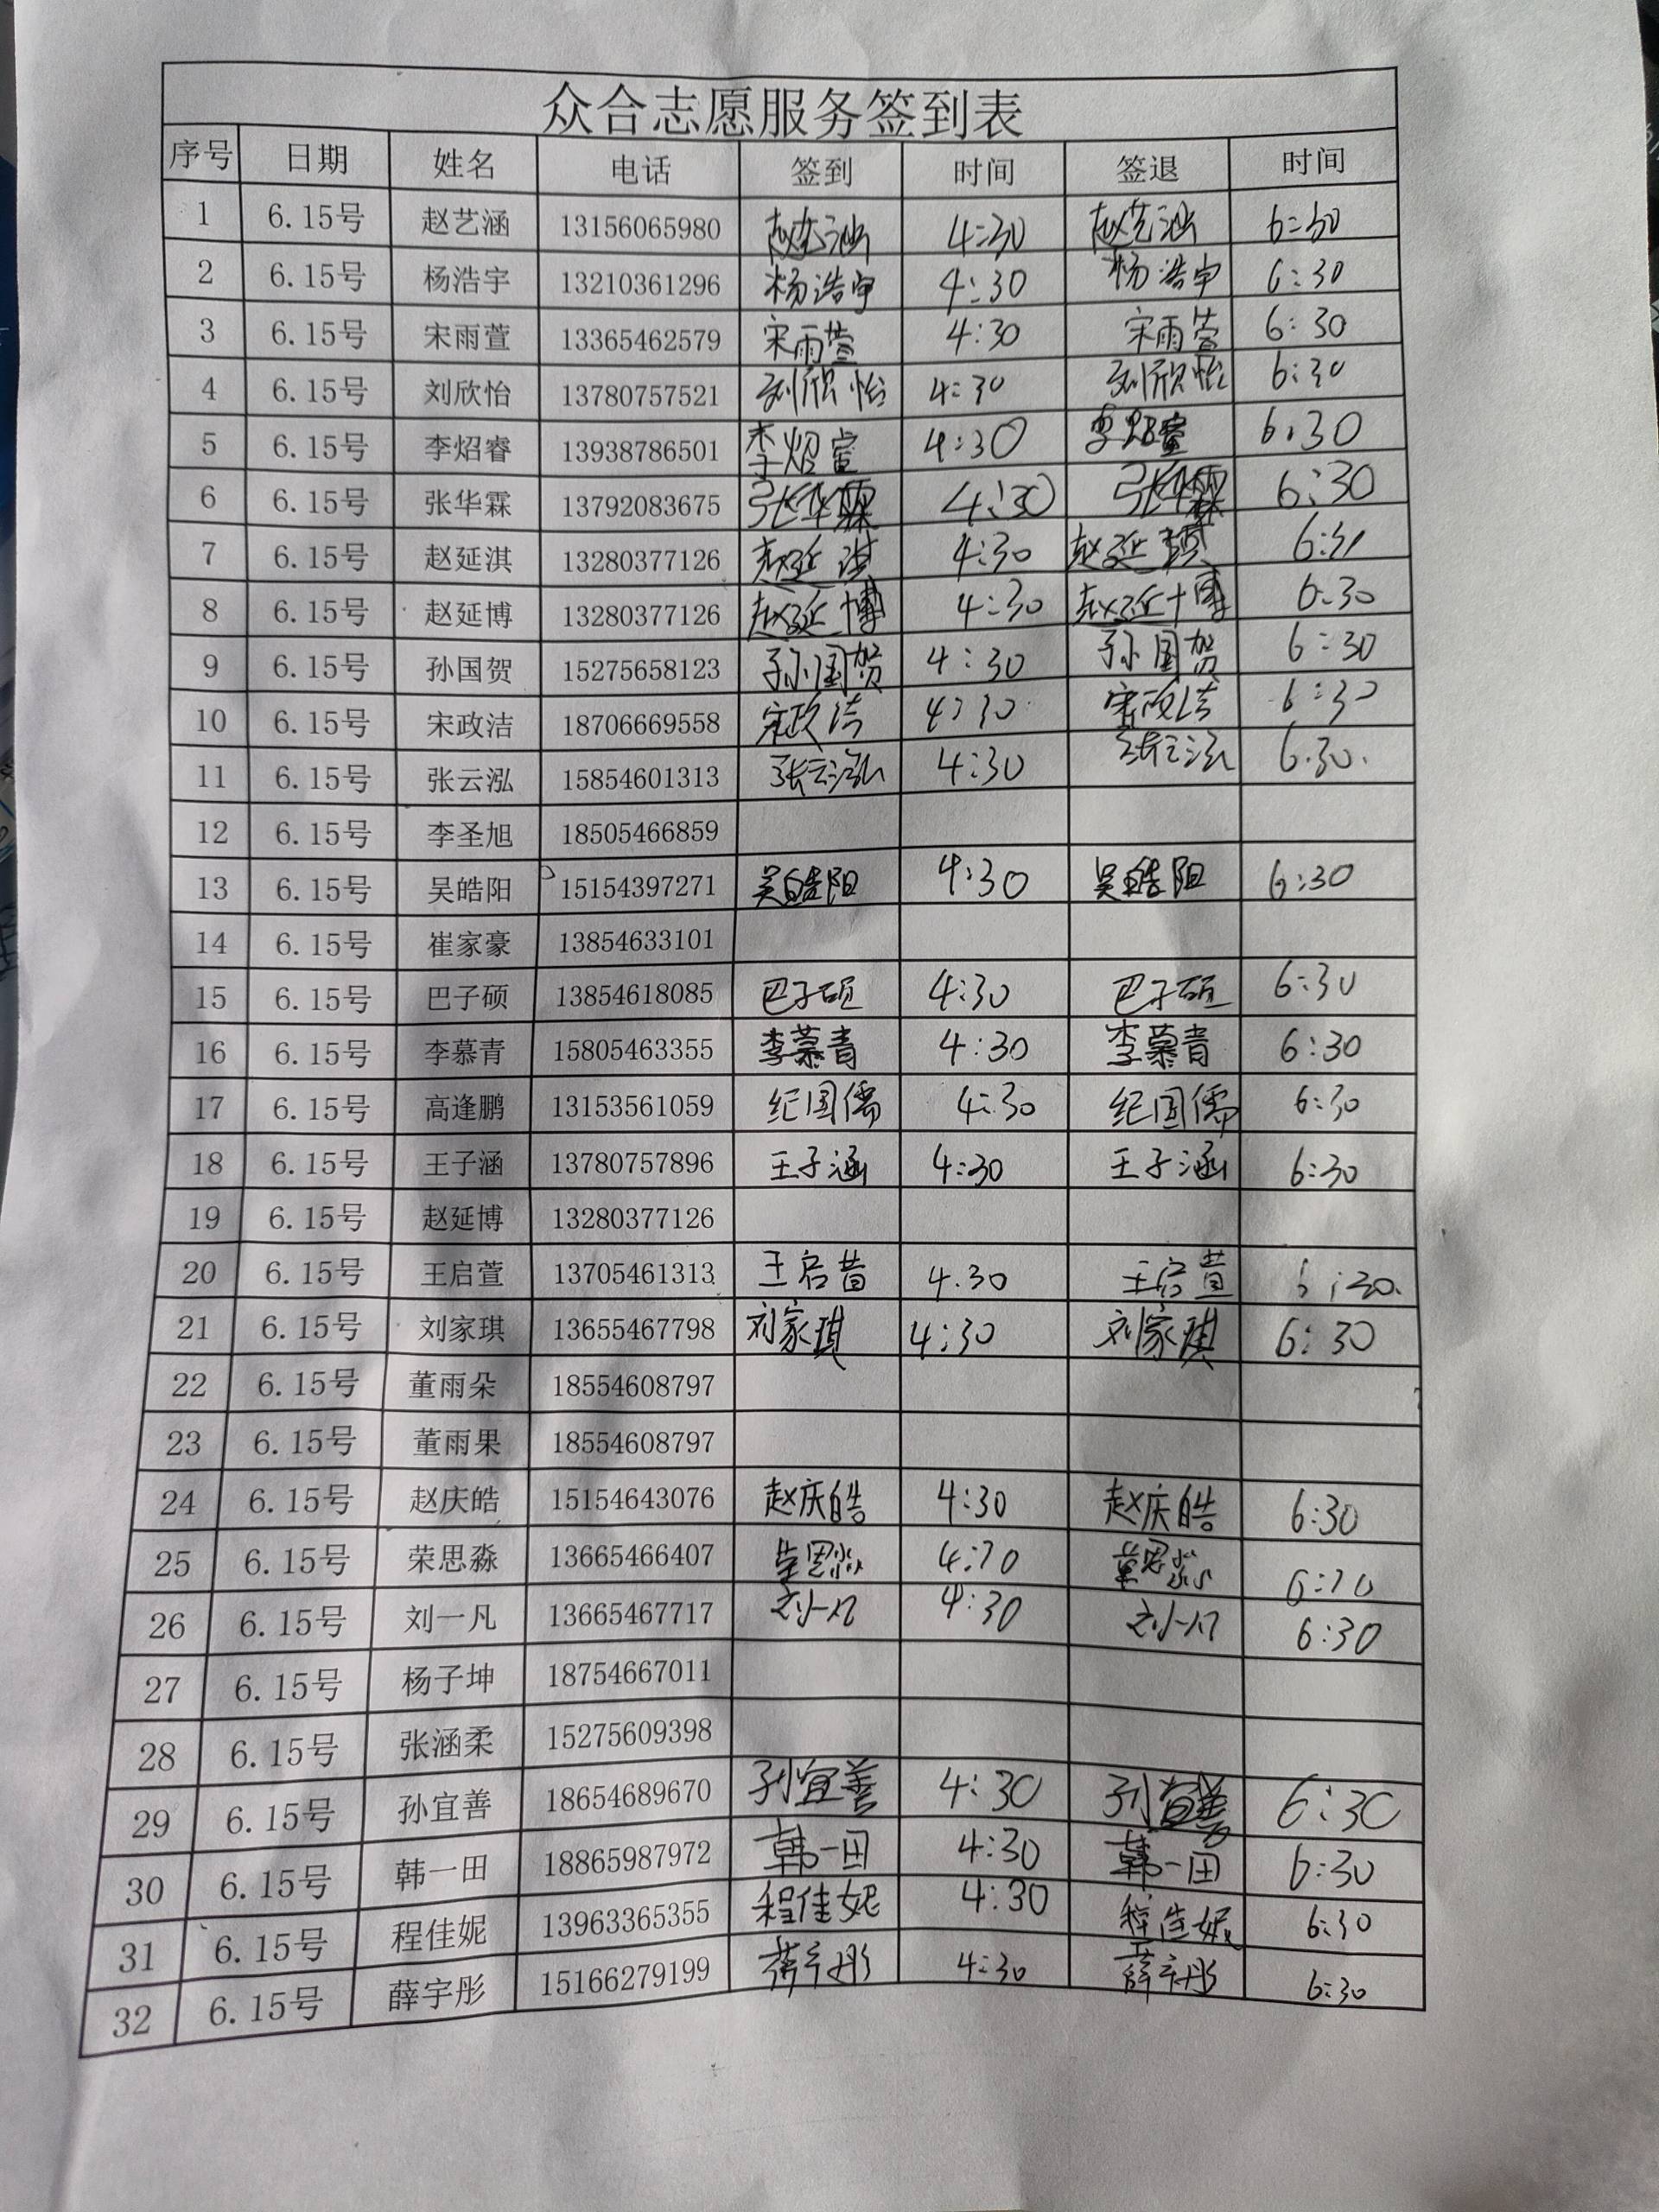 众合志愿服务签到表
序号 日期 姓名 电话 签到 时间 签退 时间
1 6.15号 赵艺涵 13156065980 赵艺涵 4:30 赵艺涵 6:30
2 6.15号 杨浩宇 13210361296 杨浩宇 4:30 杨浩宇 6:30
3 6.15号 宋雨萱 13365462579 宋雨萱 4:30 宋雨萱 6:30
4 6.15号 刘欣怡 13780757521 刘欣怡 4:30 刘欣怡 6:30
5 6.15号 李炤睿 13938786501 李炤 4:30 李炤 6:30
6 6.15号 张华霖 13792083675 张华霖 4:30 张华霖 6:30
7 6.15号 赵延淇 13280377126 赵延淇 4:30 赵延淇 6:30
8 6.15号 赵延博 13280377126 赵延博 4:30 赵延博 6:30
9 6.15号 孙国贺 15275658123 孙国贺 4:30 孙国贺 6:30
10 6.15号 宋政洁 18706669558 宋政洁 4:30 宋政洁 6:30
11 6.15号 张云泓 15854601313 张云泓 4:30 张云泓 6.30.
12 6.15号 李圣旭 18505466859
13 6.15号 吴皓阳 15154397271 吴皓阳 4:30 吴皓阳 6:30
14 6.15号 崔家豪 13854633101
15 6.15号 巴子硕 13854618085 巴子硕 4:30 巴子硕 6:30
16 6.15号 李慕青 15805463355 李慕青 4:30 李慕青 6:30
17 6.15号 高逢鹏 13153561059 纪国儒 4:30 纪国儒 6:30
18 6.15号 王子涵 13780757896 王子涵 4:30 王子涵 6:30
19 6.15号 赵延博 13280377126
20 6.15号 王启萱 13705461313 王启萱 4.30 王启萱 6:30.
21 6.15号 刘家琪 13655467798 刘家琪 4:30 刘家琪 6:30
22 6.15号 董雨朵 18554608797
23 6.15号 董雨果 18554608797
24 6.15号 赵庆皓 15154643076 赵庆皓 4:30 赵庆皓 6:30
25 6.15号 荣思淼 13665466407 荣思淼 4:30 荣思淼 6:30
26 6.15号 刘一凡 13665467717 刘一凡 4:30 刘一凡 6:30
27 6.15号 杨子坤 18754667011
28 6.15号 张涵柔 15275609398
29 6.15号 孙宜善 18654689670 孙宜善 4:30 孙宜善 6:30
30 6.15号 韩一田 18865987972 韩一田 4:30 韩一田 6:30
31 6.15号 程佳妮 13963365355 程佳妮 4:30 程佳妮 6:30
32 6.15号 薛宇彤 15166279199 薛宇彤 4:30 薛宇彤 6:30